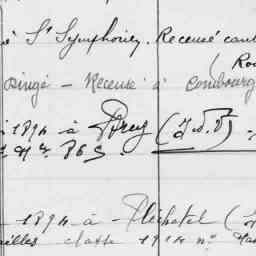 é St Symphorien. Recensé cant
(Rou
Dingé - Recensé à Combourg
1894 à Bruz (I & V) =
nt n° 865.
- 1894 à - Pléchatel (I
ailles classe 1914 n°